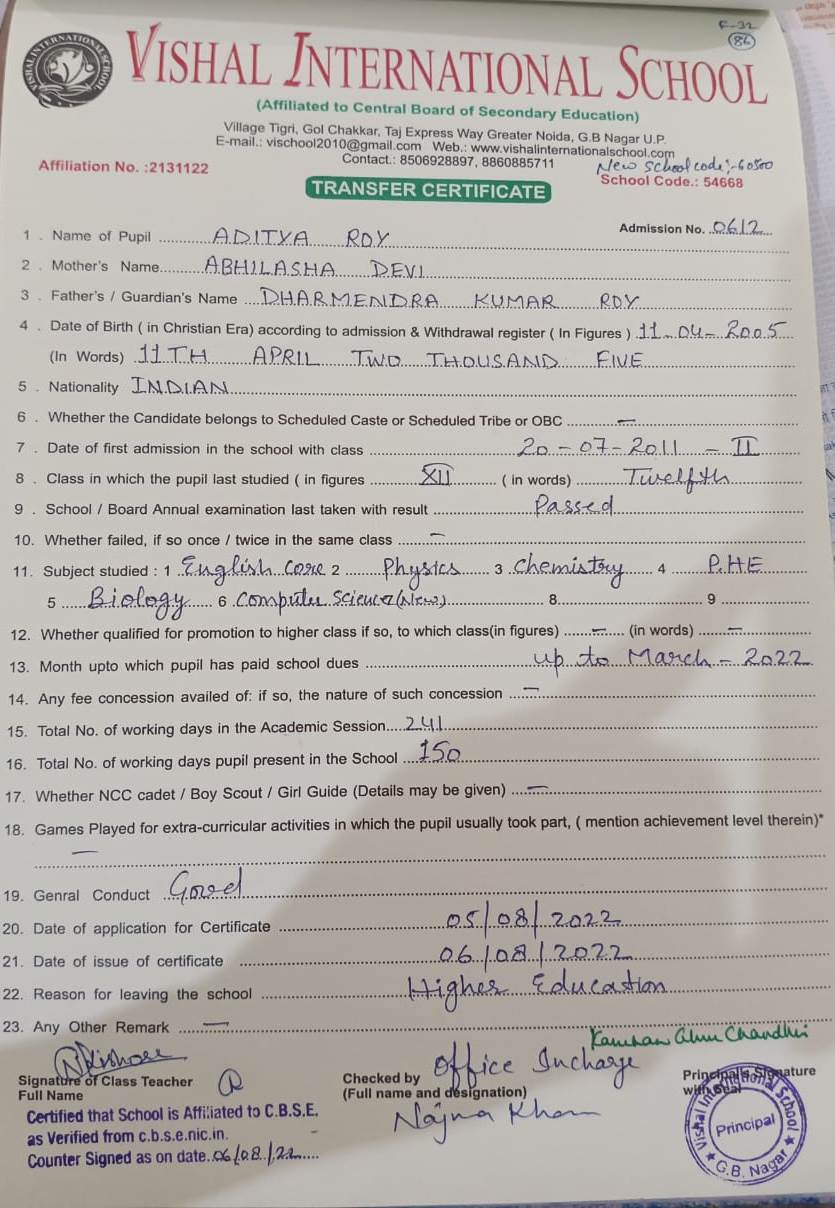 F-32
86
VISHAL INTERNATIONAL SCHOOL
VISHAL INTERNATIONAL SCHOOL
(Affiliated to Central Board of Secondary Education)
Village Tigri, Gol Chakkar, Taj Express Way Greater Noida, G.B Nagar U.P.
E-mail.: vischool2010@gmail.com Web.: www.vishalinternationalschool.com
Contact.: 8506928897, 8860885711
New School code:-60500
Affiliation No. :2131122
School Code.: 54668
TRANSFER CERTIFICATE
Admission No. 0612
1 . Name of Pupil ADITYA ROY
2 . Mother's Name ABHILASHA DEVI
3 . Father's / Guardian's Name DHARMENDRA KUMAR ROY
4 . Date of Birth ( in Christian Era) according to admission & Withdrawal register ( In Figures ) 11-04-2005
(In Words) 11TH APRIL TWO THOUSAND FIVE
5 . Nationality INDIAN
6 . Whether the Candidate belongs to Scheduled Caste or Scheduled Tribe or OBC —
7 . Date of first admission in the school with class 20-07-2011 - II
8 . Class in which the pupil last studied ( in figures XII ( in words) Twelfth
9 . School / Board Annual examination last taken with result Passed
10. Whether failed, if so once / twice in the same class —
11. Subject studied : 1 English Core 2 Physics 3 Chemistry 4 P.HE
5 Biology 6 Computer Science (New) 8 9
12. Whether qualified for promotion to higher class if so, to which class(in figures) — (in words) —
13. Month upto which pupil has paid school dues up to March - 2022
14. Any fee concession availed of: if so, the nature of such concession —
15. Total No. of working days in the Academic Session 241
16. Total No. of working days pupil present in the School 150
17. Whether NCC cadet / Boy Scout / Girl Guide (Details may be given) —
18. Games Played for extra-curricular activities in which the pupil usually took part, ( mention achievement level therein)*
—
19. Genral Conduct Good
20. Date of application for Certificate 05/08/2022
21. Date of issue of certificate 06/08/2022
22. Reason for leaving the school Higher Education
23. Any Other Remark —
Signature of Class Teacher
Full Name
Checked by Office Incharge
(Full name and designation)
Najma Khan
Principal's Signature
with Seal
Certified that School is Affiliated to C.B.S.E.
as Verified from c.b.s.e.nic.in.
Counter Signed as on date. 06/08/22
Vishal International School
Principal
G.B. Nagar